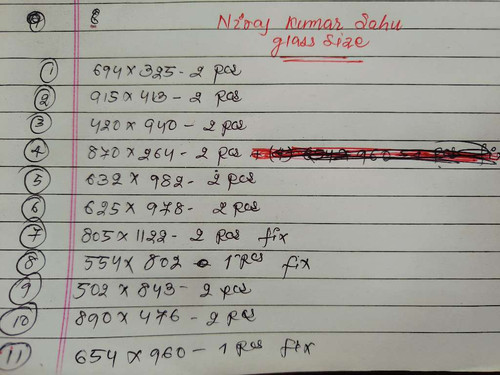 Niraj Kumar Sahu
glass Size
1 694 x 325 - 2 pcs
2 915 x 413 - 2 pcs
3 420 x 940 - 2 pcs
4 870 x 264 - 2 pcs
5 632 x 982 - 2 pcs
6 625 x 978 - 2 pcs
7 805 x 1122 - 2 pcs fix
8 554 x 802 - 1 pcs fix
9 502 x 843 - 2 pcs
10 890 x 476 - 2 pcs
11 654 x 960 - 1 pcs fix